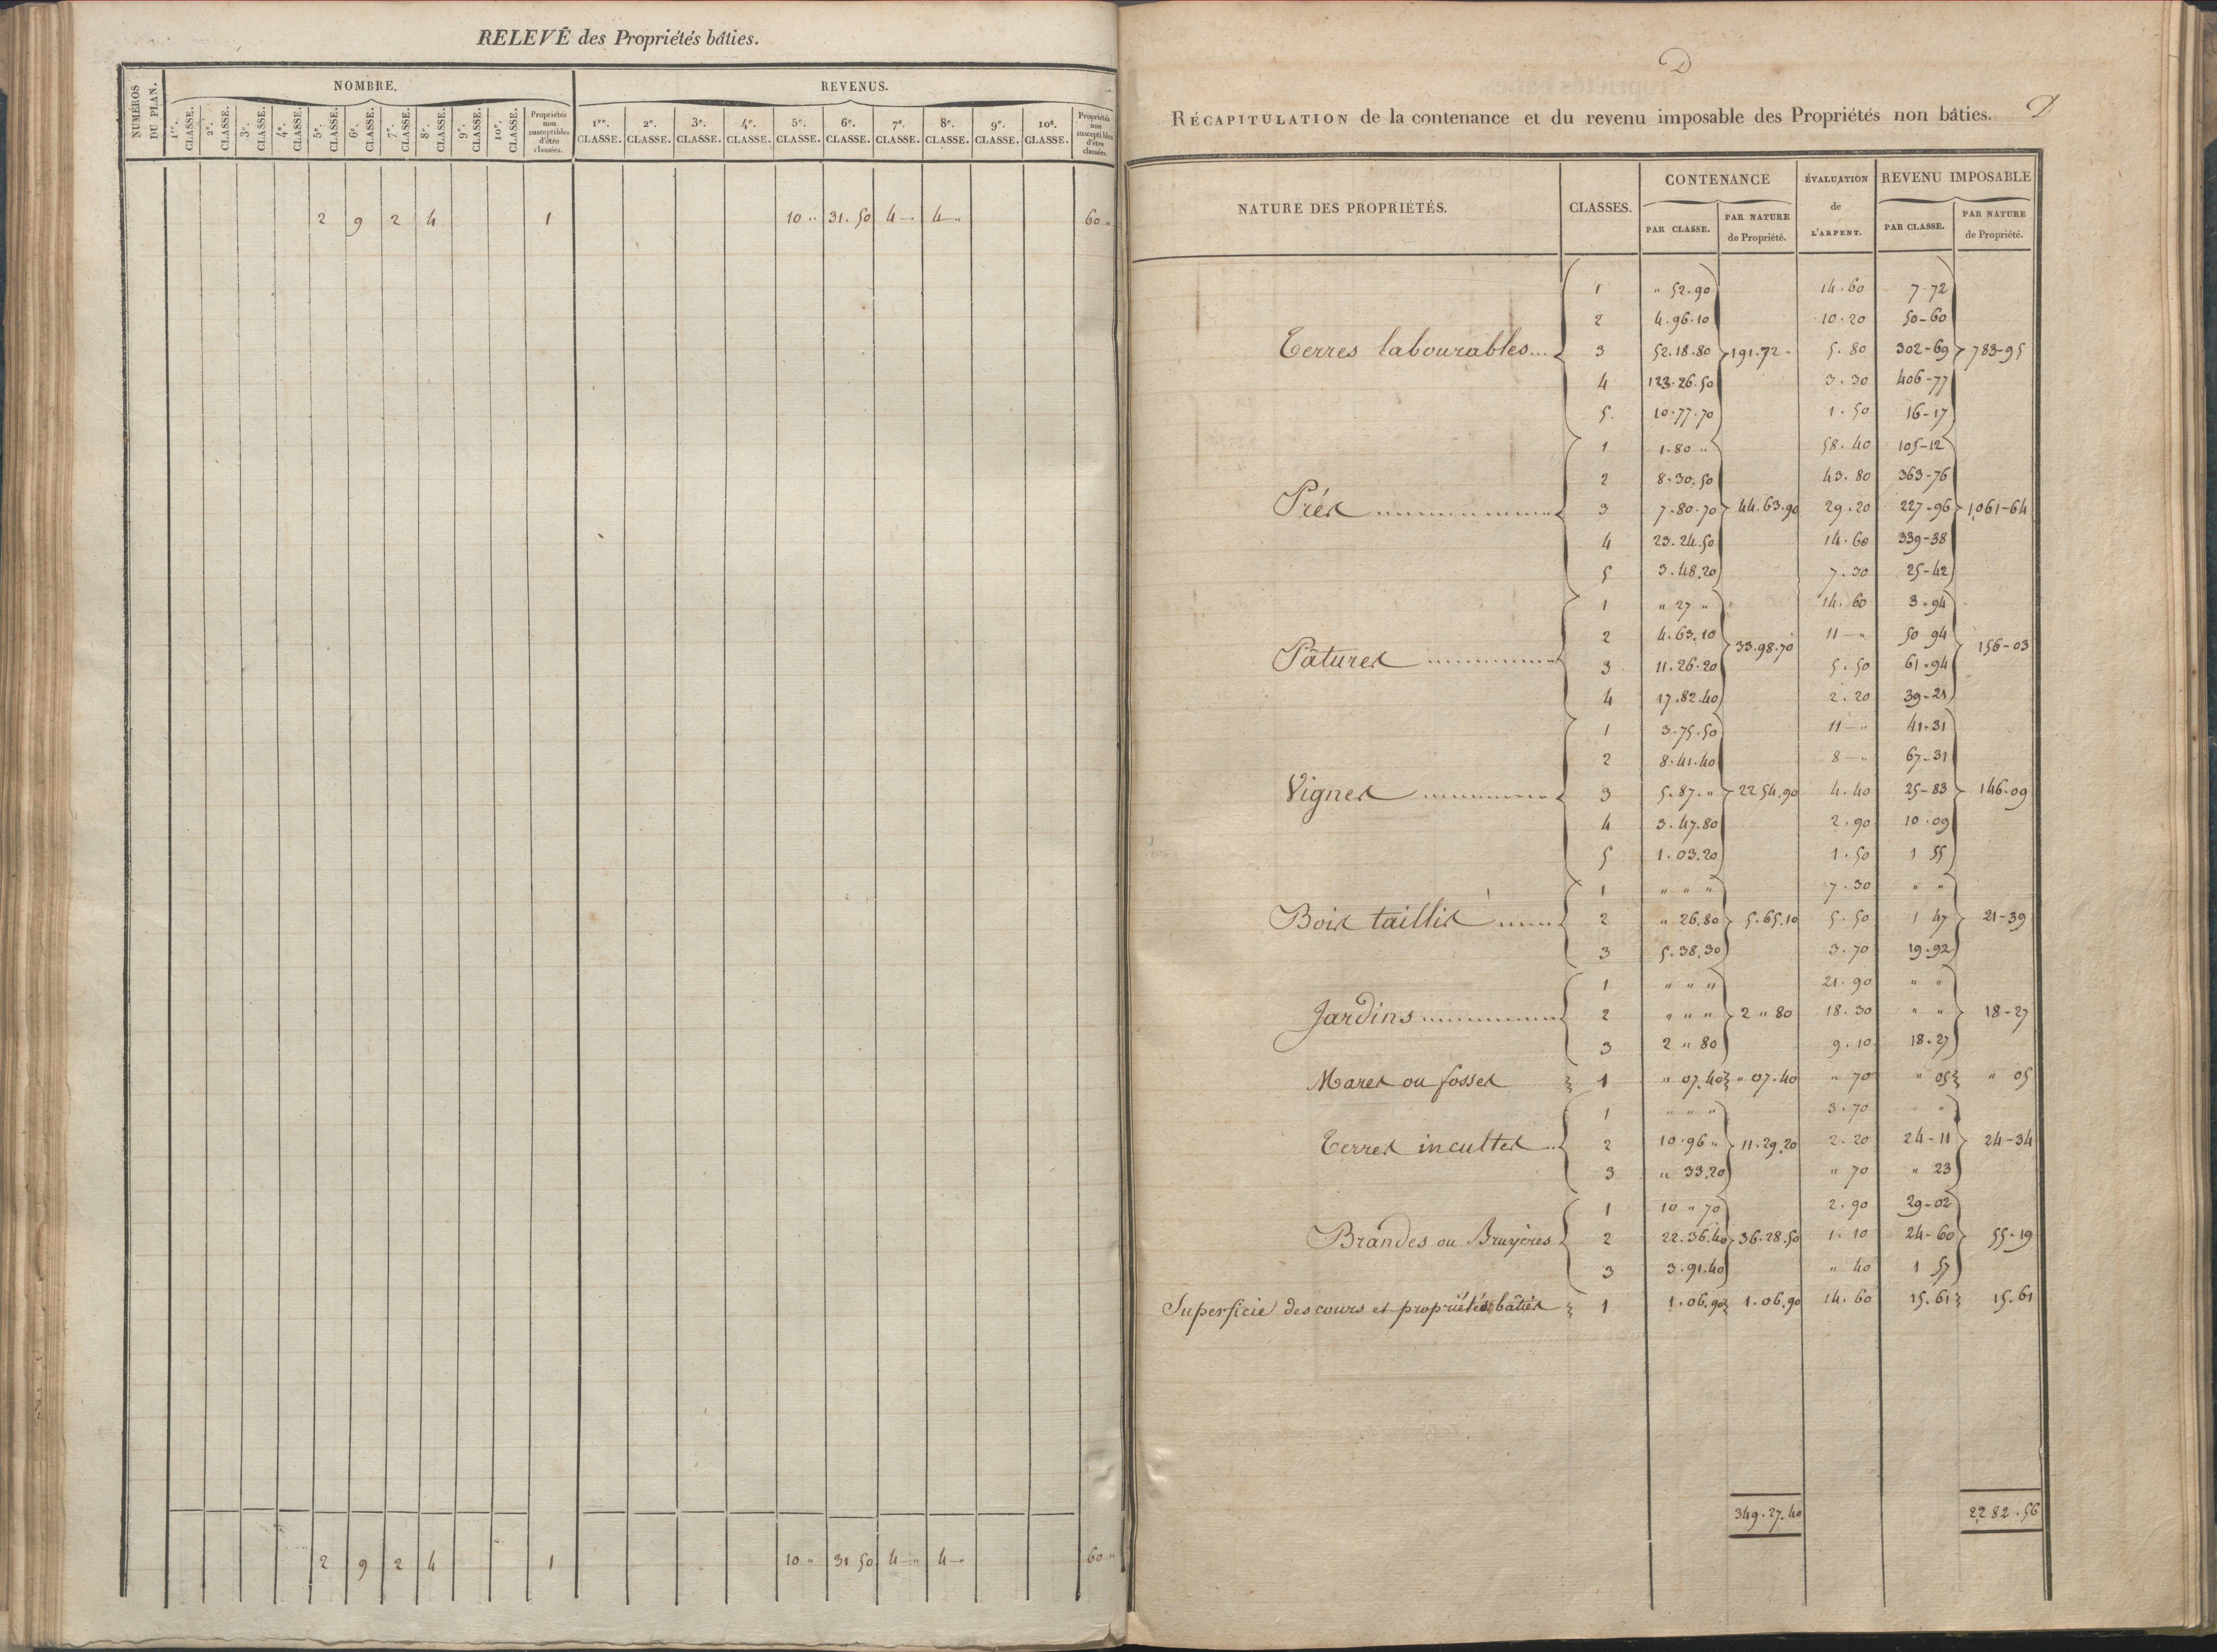 RELEVÉ des Propriétés bâties.
NUMÉROS DU PLAN. NOMBRE. REVENUS.
1re. CLASSE. 2e. CLASSE. 3e. CLASSE. 4e. CLASSE. 5e. CLASSE. 6e. CLASSE. 7e. CLASSE. 8e. CLASSE. 9e. CLASSE. 10e. CLASSE. Propriétés non susceptibles d'être classées. 1re. CLASSE. 2e. CLASSE. 3e. CLASSE. 4e. CLASSE. 5e. CLASSE. 6e. CLASSE. 7e. CLASSE. 8e. CLASSE. 9e. CLASSE. 10e. CLASSE. Propriétés non susceptibles d'être classées.
2 9 2 4 1 10 " 31.50 4-" 4-" 60 "
2 9 2 4 1 10 " 31 50 4-" 4-" 60 "
D
RÉCAPITULATION de la contenance et du revenu imposable des Propriétés non bâties. D
NATURE DES PROPRIÉTÉS. CLASSES. CONTENANCE ÉVALUATION de L'ARPENT. REVENU IMPOSABLE
PAR CLASSE. PAR NATURE de Propriété. PAR CLASSE. PAR NATURE de Propriété.
1 " 52.90 14.60 7.72
2 4.96.10 10.20 50-60
Terres labourables... 3 52.18.80 191.72 " 5.80 302-69 783-95
4 123.26.50 3.30 406-77
5. 10.77.70 1.50 16-17
1 1.80 " 58.40 105-12
2 8.30.50 43.80 363-76
Prés 3 7.80.70 44.63.90 29.20 227-96 1,061-64
4 23.24.50 14.60 339-38
5 3.48.20 7.30 25-42
1 " 27 " 14.60 3-94
2 4.63.10 11-" 50 94
Pâtures 33.98.70 156-03
3 11.26.20 5.50 61.94
4 17.82.40 2.20 39-21
1 3.75.50 11-" 41-31
2 8.41.40 8-" 67-31
Vignes 3 5.87." 22 54.90 4.40 25-83 146.09
4 3.47.80 2.90 10.09
5 1.03.20 1.50 1 55
1 " " " 7.30 " "
Bois taillis 2 " 26.80 5.65.10 5.50 1 47 21-39
3 5.38.30 3.70 19.92
1 " " " 21.90 " "
Jardins 2 " " " 2 " 80 18.30 " " 18-27
3 2 " 80 9.10 18.27
Mares ou fosses 1 " 07.40 " 07.40 " 70 " 05 " 05
1 " " " 3.70 " "
Terres incultes 2 10.96 " 11.29.20 2.20 24-11 24-34
3 " 33.20 " 70 " 23
1 10 " 70 2.90 29-02
Brandes ou Bruyères 2 22.36.40 36.28.50 1.10 24-60 55-19
3 3.91.40 " 40 1 57
Superficie des cours et propriétés bâties 1 1.06.90 1.06.90 14.60 15.61 15.61
349.27.40 2282.56